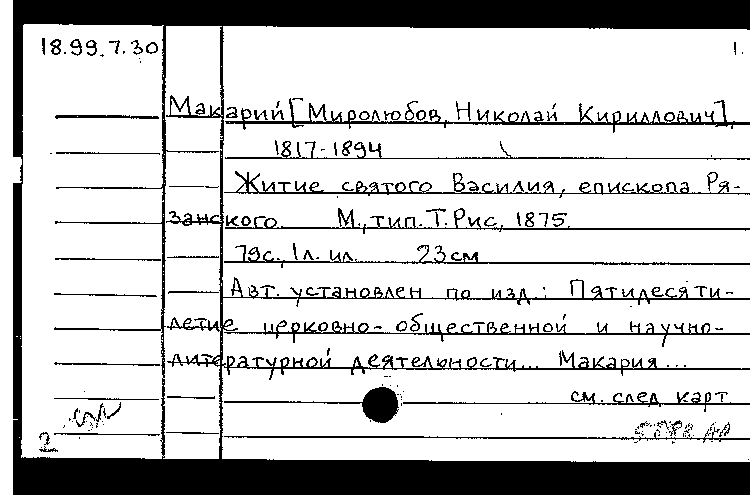 18.99.7.30 1.
Макарий [Миролюбов, Николай Кириллович],
1817-1894
Житие святого Василия, епископа Ря-
занского. М., тип. Т. Рис, 1875.
79с., 1л. ил. 23 см
Авт. установлен по изд.: Пятидесяти-
летие церковно-общественной и научно-
литературной деятельности... Макария...
см. след карт.
2